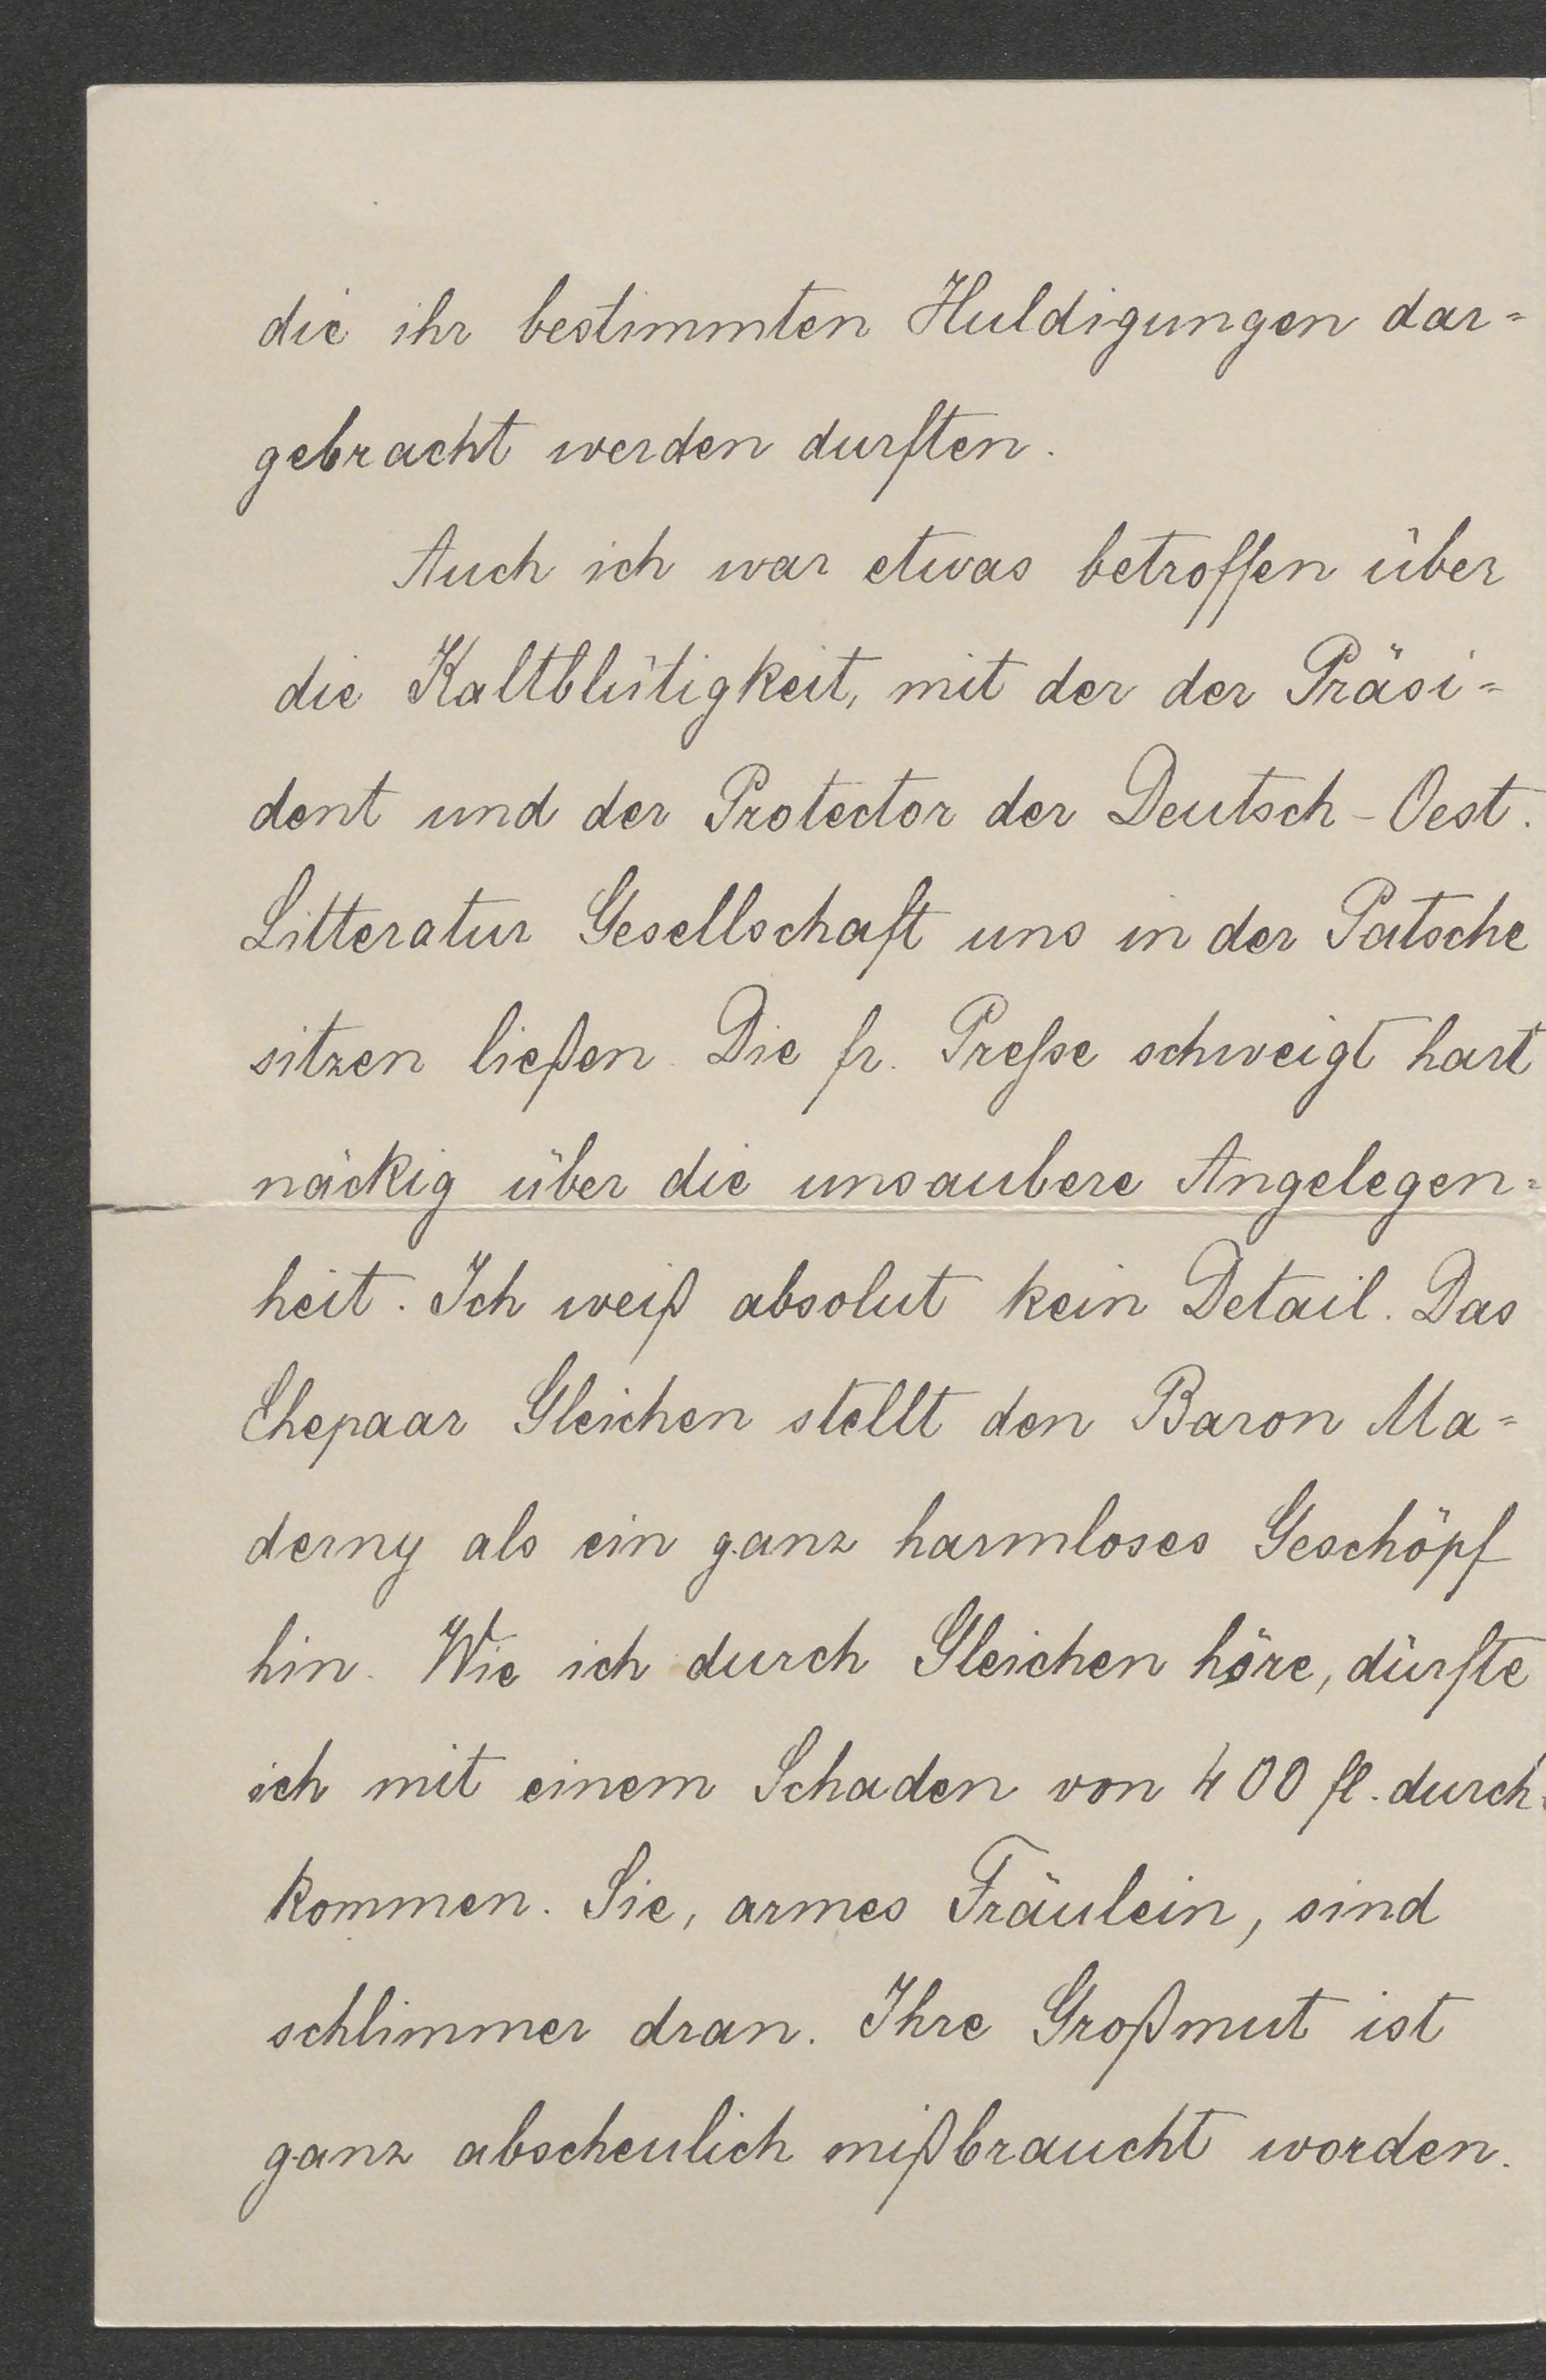 die ihr bestimmten Huldigungen dar=
gebracht werden durften.
Auch ich war etwas betroffen über
die Kaltblütigkeit, mit der der Präsi=
dent und der Protector der Deutsch-Oest.
Litteratur Gesellschaft uns in der Patsche
sitzen ließen. Die fr. Preſse schweigt hart
näckig über die unsaubere Angelegen=
heit. Ich weiß absolut kein Detail. Das
Ehepaar Gleichen stellt den Baron Ma=
derny als ein ganz harmloses Geschöpf
hin. Wie ich durch Gleichen höre, dürfte
ich mit einem Schaden von 400 fl. durch=
kommen. Sie, armes Fräulein, sind
schlimmer dran. Ihre Großmut ist
ganz abscheulich mißbraucht worden.